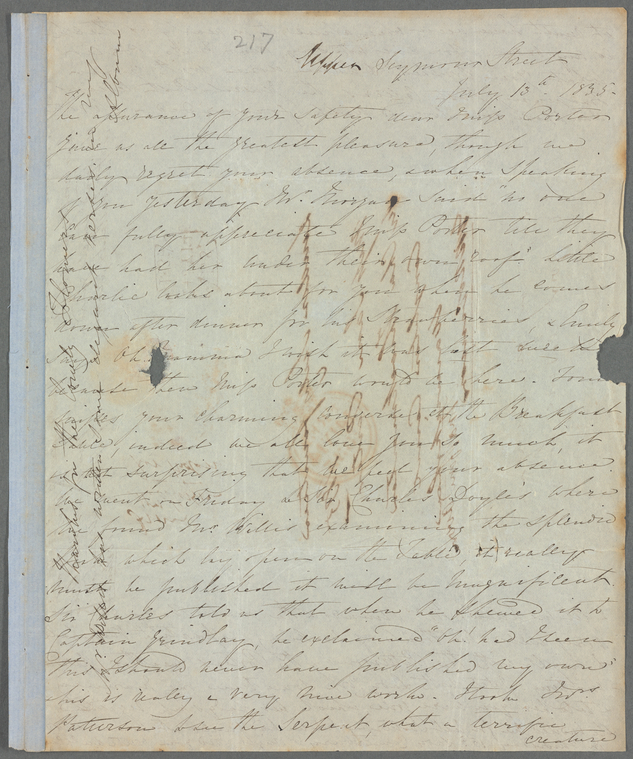 217
Upper Seymour Street
July 13th 1835-
The assurance of your safety dear Miss Porter
gives us all the greatest pleasure, though we
daily regret your absence, & when speaking
of you yesterday Mr. Morgan said "no one
can fully appreciate Miss Porter till they
have had her under their own roof" little
Charlie looks about for you when he comes
down after dinner for his Strawberries, & Emily
says Oh Mamma I wish it was last
because then Miss Porter would be here.
your charming at the Breakfast
Table, indeed we all love you so much, it
is not surprising that we feel your absence.
We went on Friday to Sir Charles Doyle's where
we found Mr. Willis examining the splendid
which lay open on the Table it really
must be published it will be magnificent
Sir Charles told us that when he shewed it to
Captain Grindlay, he exclaimed "Oh! had I seen
this I should never have published my own"
this is really a very nice work. I took Mrs
Patterson to see the Serpent, what a terrific
creature
lovely
Album